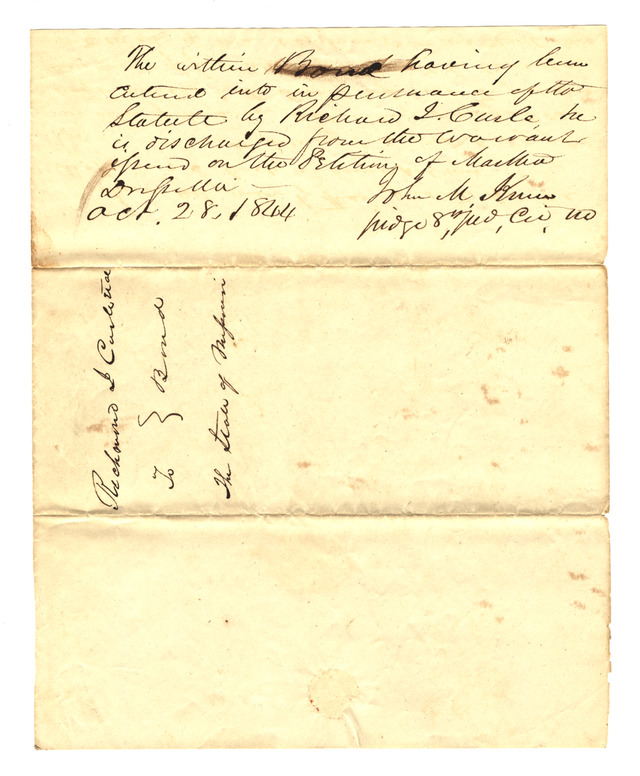 The within Bond having been
entered into in pursuance of the
Statute by Richard J. Curle, he
is discharged from the warrant
issued on the Petition of Martha
Drusilla —
Oct. 28, 1844
John M. Krum
judge 8th, jud, Cir, Mo
Richmond J Curle &
To } Bond
The State of Missouri